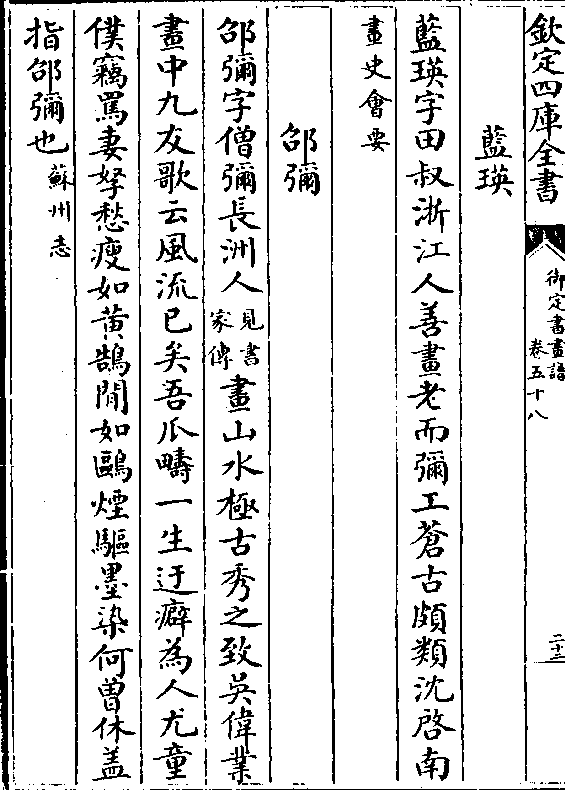 欽定四庫全書
御定書畫譜
卷五十八
二十二
藍瑛
藍瑛字田叔浙江人善畫老而彌工蒼古頗類沈啓南
畫史會要
邵彌
邵彌字僧彌長洲人見書家傳畫山水極古秀之致吳偉業
畫中九友歌云風流已矣吾瓜疇一生迂癖為人尤童
僕竊罵妻孥愁瘦如黃鵠閒如鷗煙驅墨染何曾休盖
指邵彌也蘇州志